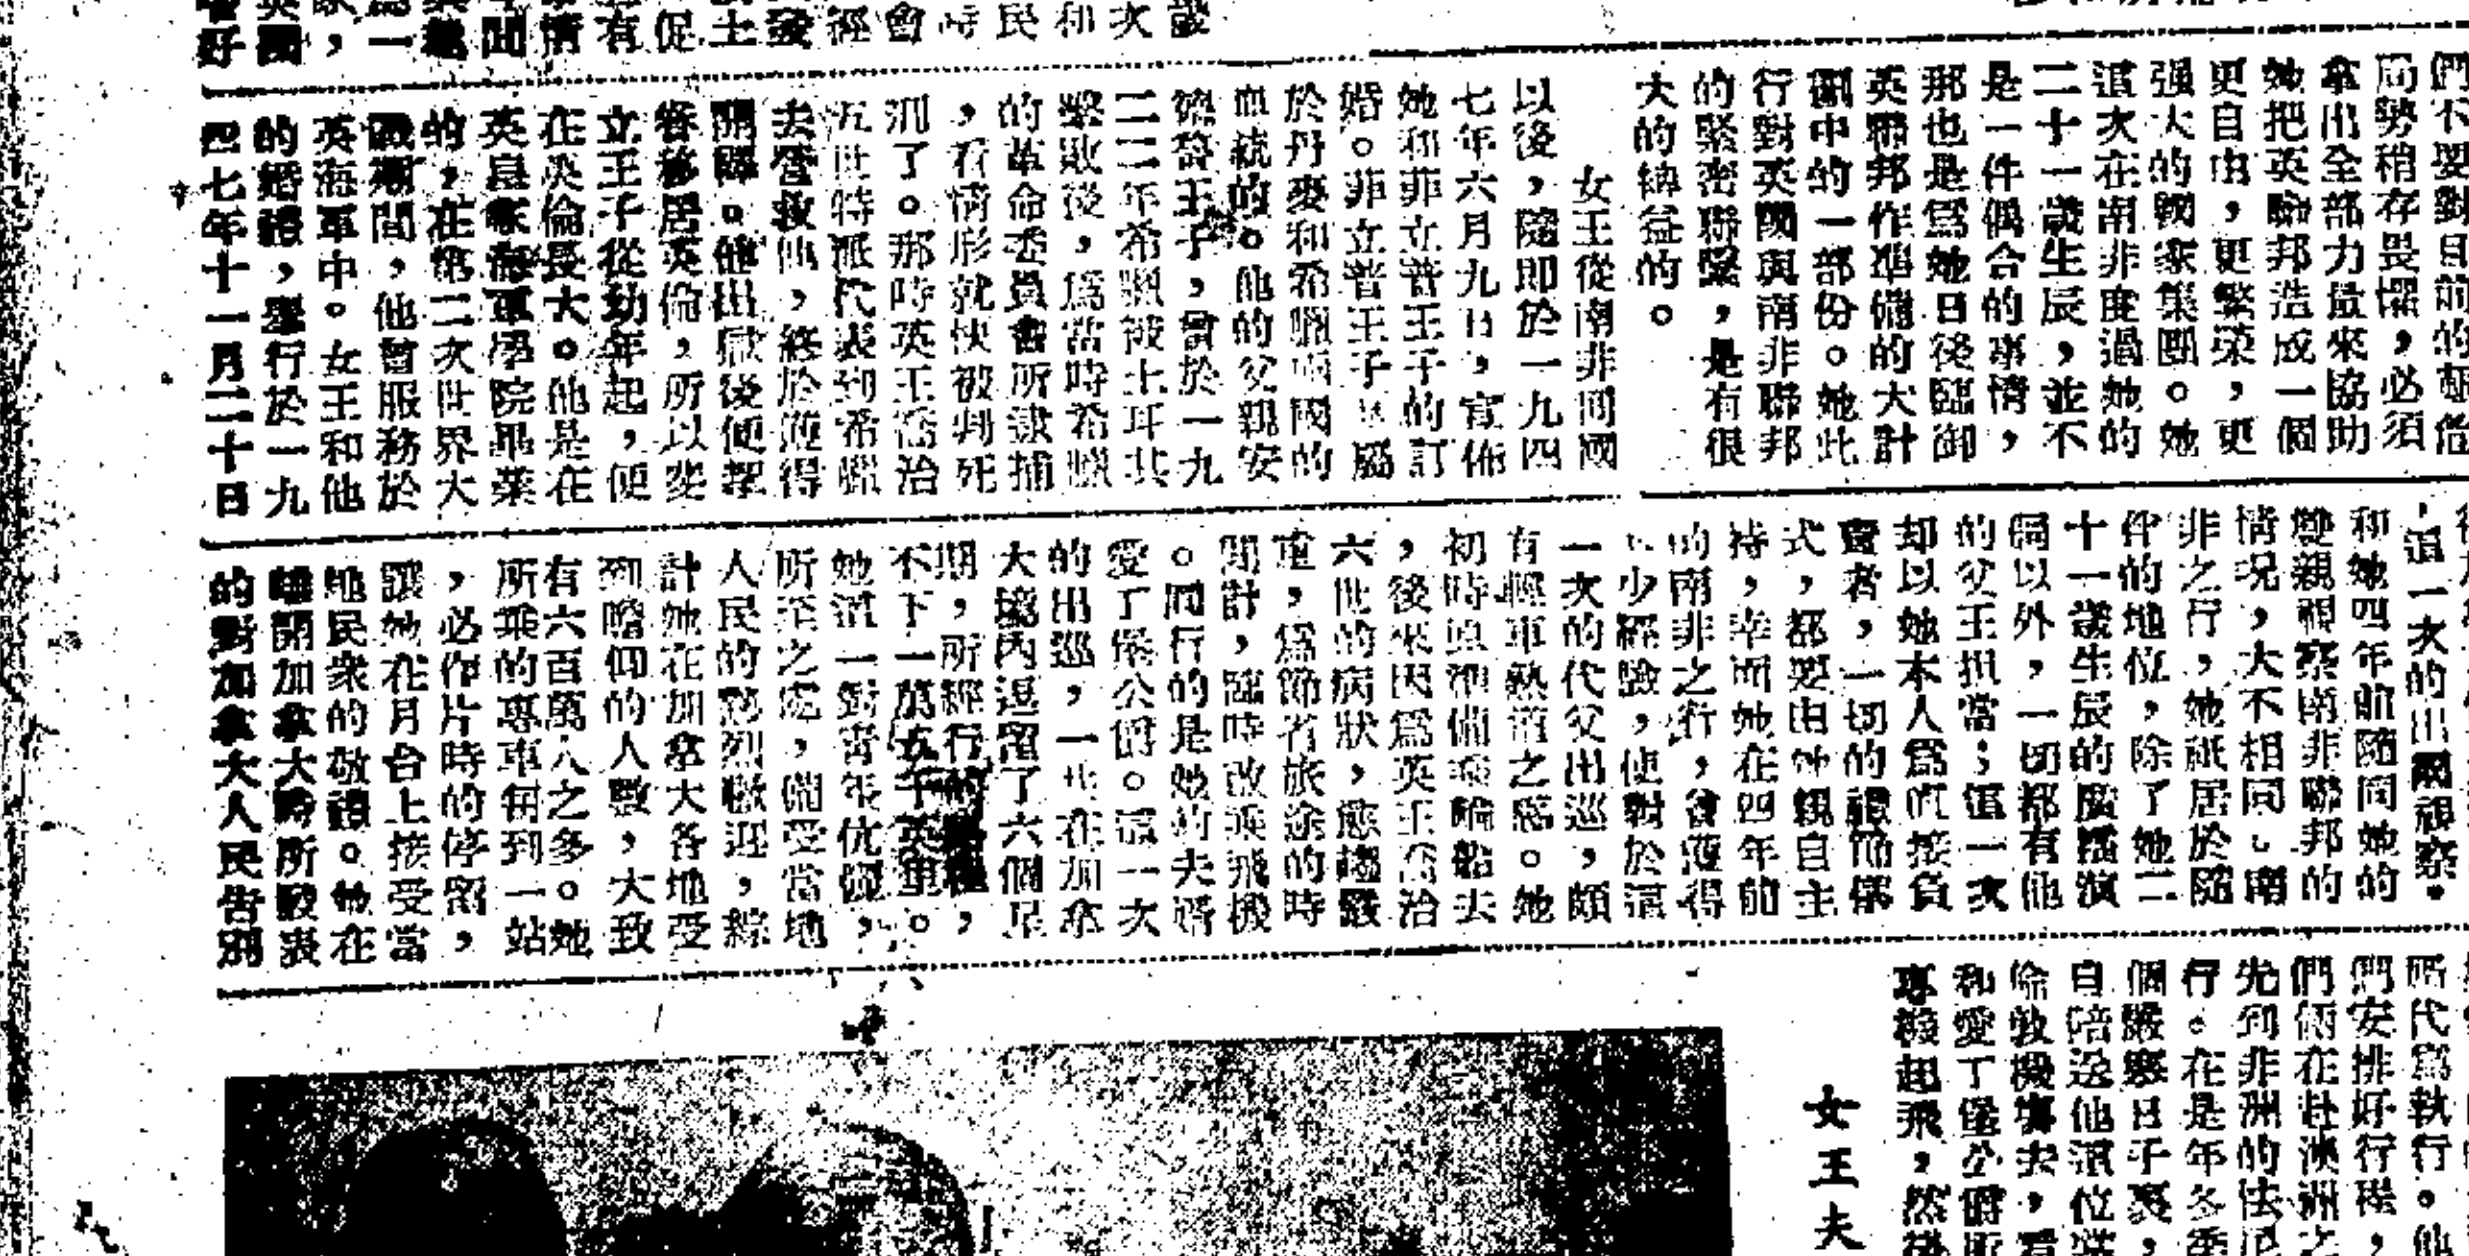 們不要對目前的
局勢稍存畏懼，必須
拿出全部力量來協助
她把英聯邦造成一個
更自由，更繁榮，更
强大的國家集團。她
這次在南非度過她的
二十一歲生辰，並不
是一件偶合的事情，
那也是為她日後臨御
英聯邦作準備的大計
劃中的一部份。她此
行對英國與南非聯邦
的緊密聯繫，是有很
大的裨益的。
女王從南非回國
以後，隨即於一九四
七年六月九日，宣佈
她和菲立普王子的訂
婚。菲立普王子是屬
於丹麥和希臘兩國的
血統的。他的父親安
德魯王子，曾於一九
二二年希臘被土耳其
擊敗後，為當時希臘
的革命委員會所逮捕
，看情形就快被判死
刑了。那時英王喬治
五世特派代表到希臘
去營救他，終於獲得
開釋。他出獄後便挈
眷移居英倫，所以菲
立王子從幼年起，便
在英倫長大。他是在
英皇家海軍學院畢業
的，在第二次世界大
戰期間，他曾服務於
英海軍中。女王和他
的婚禮，舉行於一九
四七年十一月二十日
，這一次的出國視察，
和她四年前隨同她的
雙親視察南非聯邦的
情況，大不相同。南
非之行，她祇居於隨
伴的地位，除了她二
十一歲生辰的廣播演
詞以外，一切都有他
的父王担當；這一次
却以她本人為直接負
責者，一切的禮節儀
式，都要由她親自主
持，幸而她在四年前
的南非之行，曾獲得
少經驗，使對於這
一次的代父出巡，頗
有輕車熟道之感。她
初時原準備乘輪船去
，後來因為英王喬治
六世的病狀，愈趨嚴
重，為節省旅途的時
間計，臨時改乘飛機
。同行的是她的夫婿
愛丁堡公爵。這一次
的出巡，一共在加拿
大境內逗留了六個星
期，所經行的路程，
不下一萬五千英里。
她這一對青年伉儷，
所至之處，備受當地
人民的熱烈歡迎，綜
計她在加拿大各地受
到瞻仰的人數，大致
有六百萬人之多。她
所乘的專車每到一站
，必作片時的停留，
讓她在月台上接受當
地民衆的敬禮。她在
離開加拿大時所發表
的對加拿大人民告別
所代為執行。他
們安排好行程，
們倆在赴澳洲之
先到非洲的
行。在是年冬季
個嚴寒日子裏，
自陪送他這位
倫敦機場去，看
和愛丁堡公爵所
專機起飛，然後
女王夫